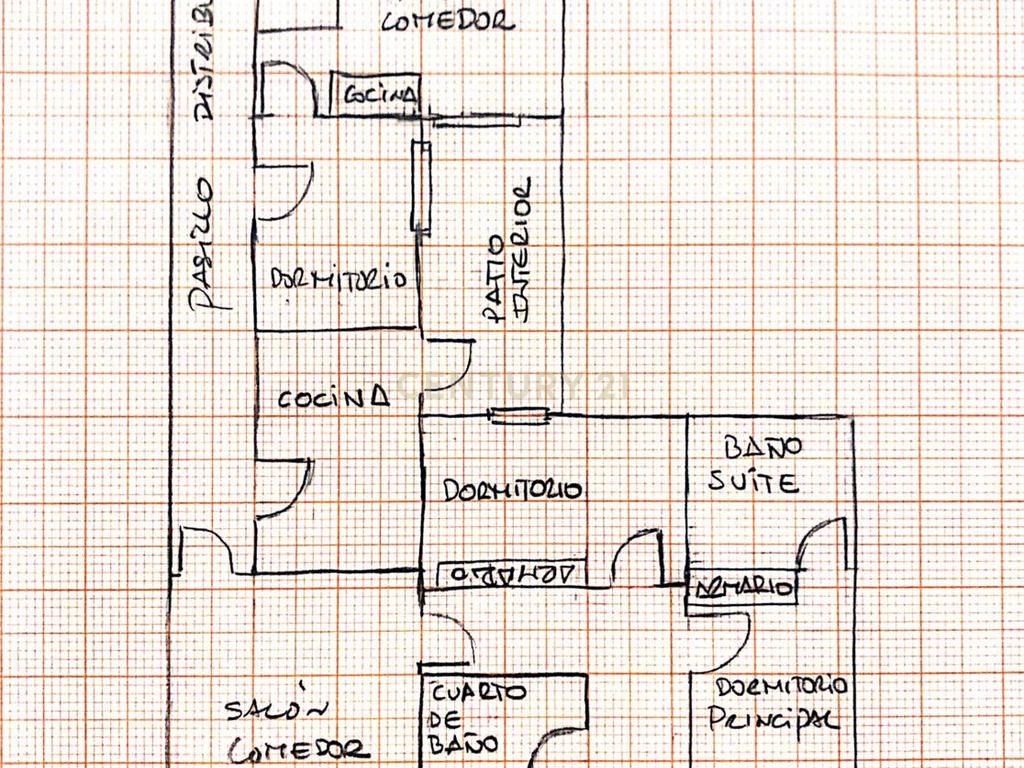 COMEDOR
DISTRIBU
COCINA
PASILLO
PATIO
INTERIOR
DORMITORIO
COCINA
CENTURY 21
BAÑO
SUÍTE
DORMITORIO
ARMARIO
ARMARIO
SALÓN
COMEDOR
CUARTO
DE
BAÑO
DORMITORIO
PRINCIPAL